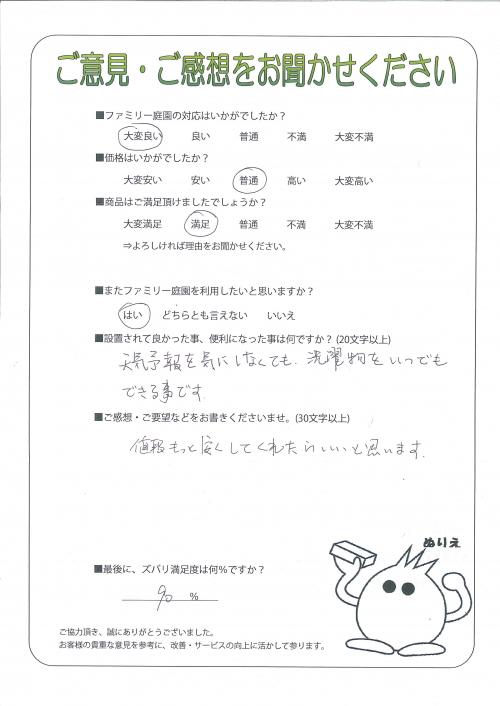 ご意見・ご感想をお聞かせください
■ファミリー庭園の対応はいかがでしたか?
大変良い 良い 普通 不満 大変不満
■価格はいかがでしたか?
大変安い 安い 普通 高い 大変高い
■商品はご満足頂けましたでしょうか?
大変満足 満足 普通 不満 大変不満
⇒よろしければ理由をお聞かせください。
■またファミリー庭園を利用したいと思いますか?
はい どちらとも言えない いいえ
■設置されて良かった事、便利になった事は何ですか?(20文字以上)
天気予報を気にしなくても、洗濯物をいつでも
できる事です.
■ご感想・ご要望などをお書きくださいませ。(30文字以上)
もっと安くしてくれたらいいと思います.
ぬりえ
■最後に、ズバリ満足度は何%ですか?
90 %
ご協力頂き、誠にありがとうございました。
お客様の貴重な意見を参考に、改善・サービスの向上に活かして参ります。